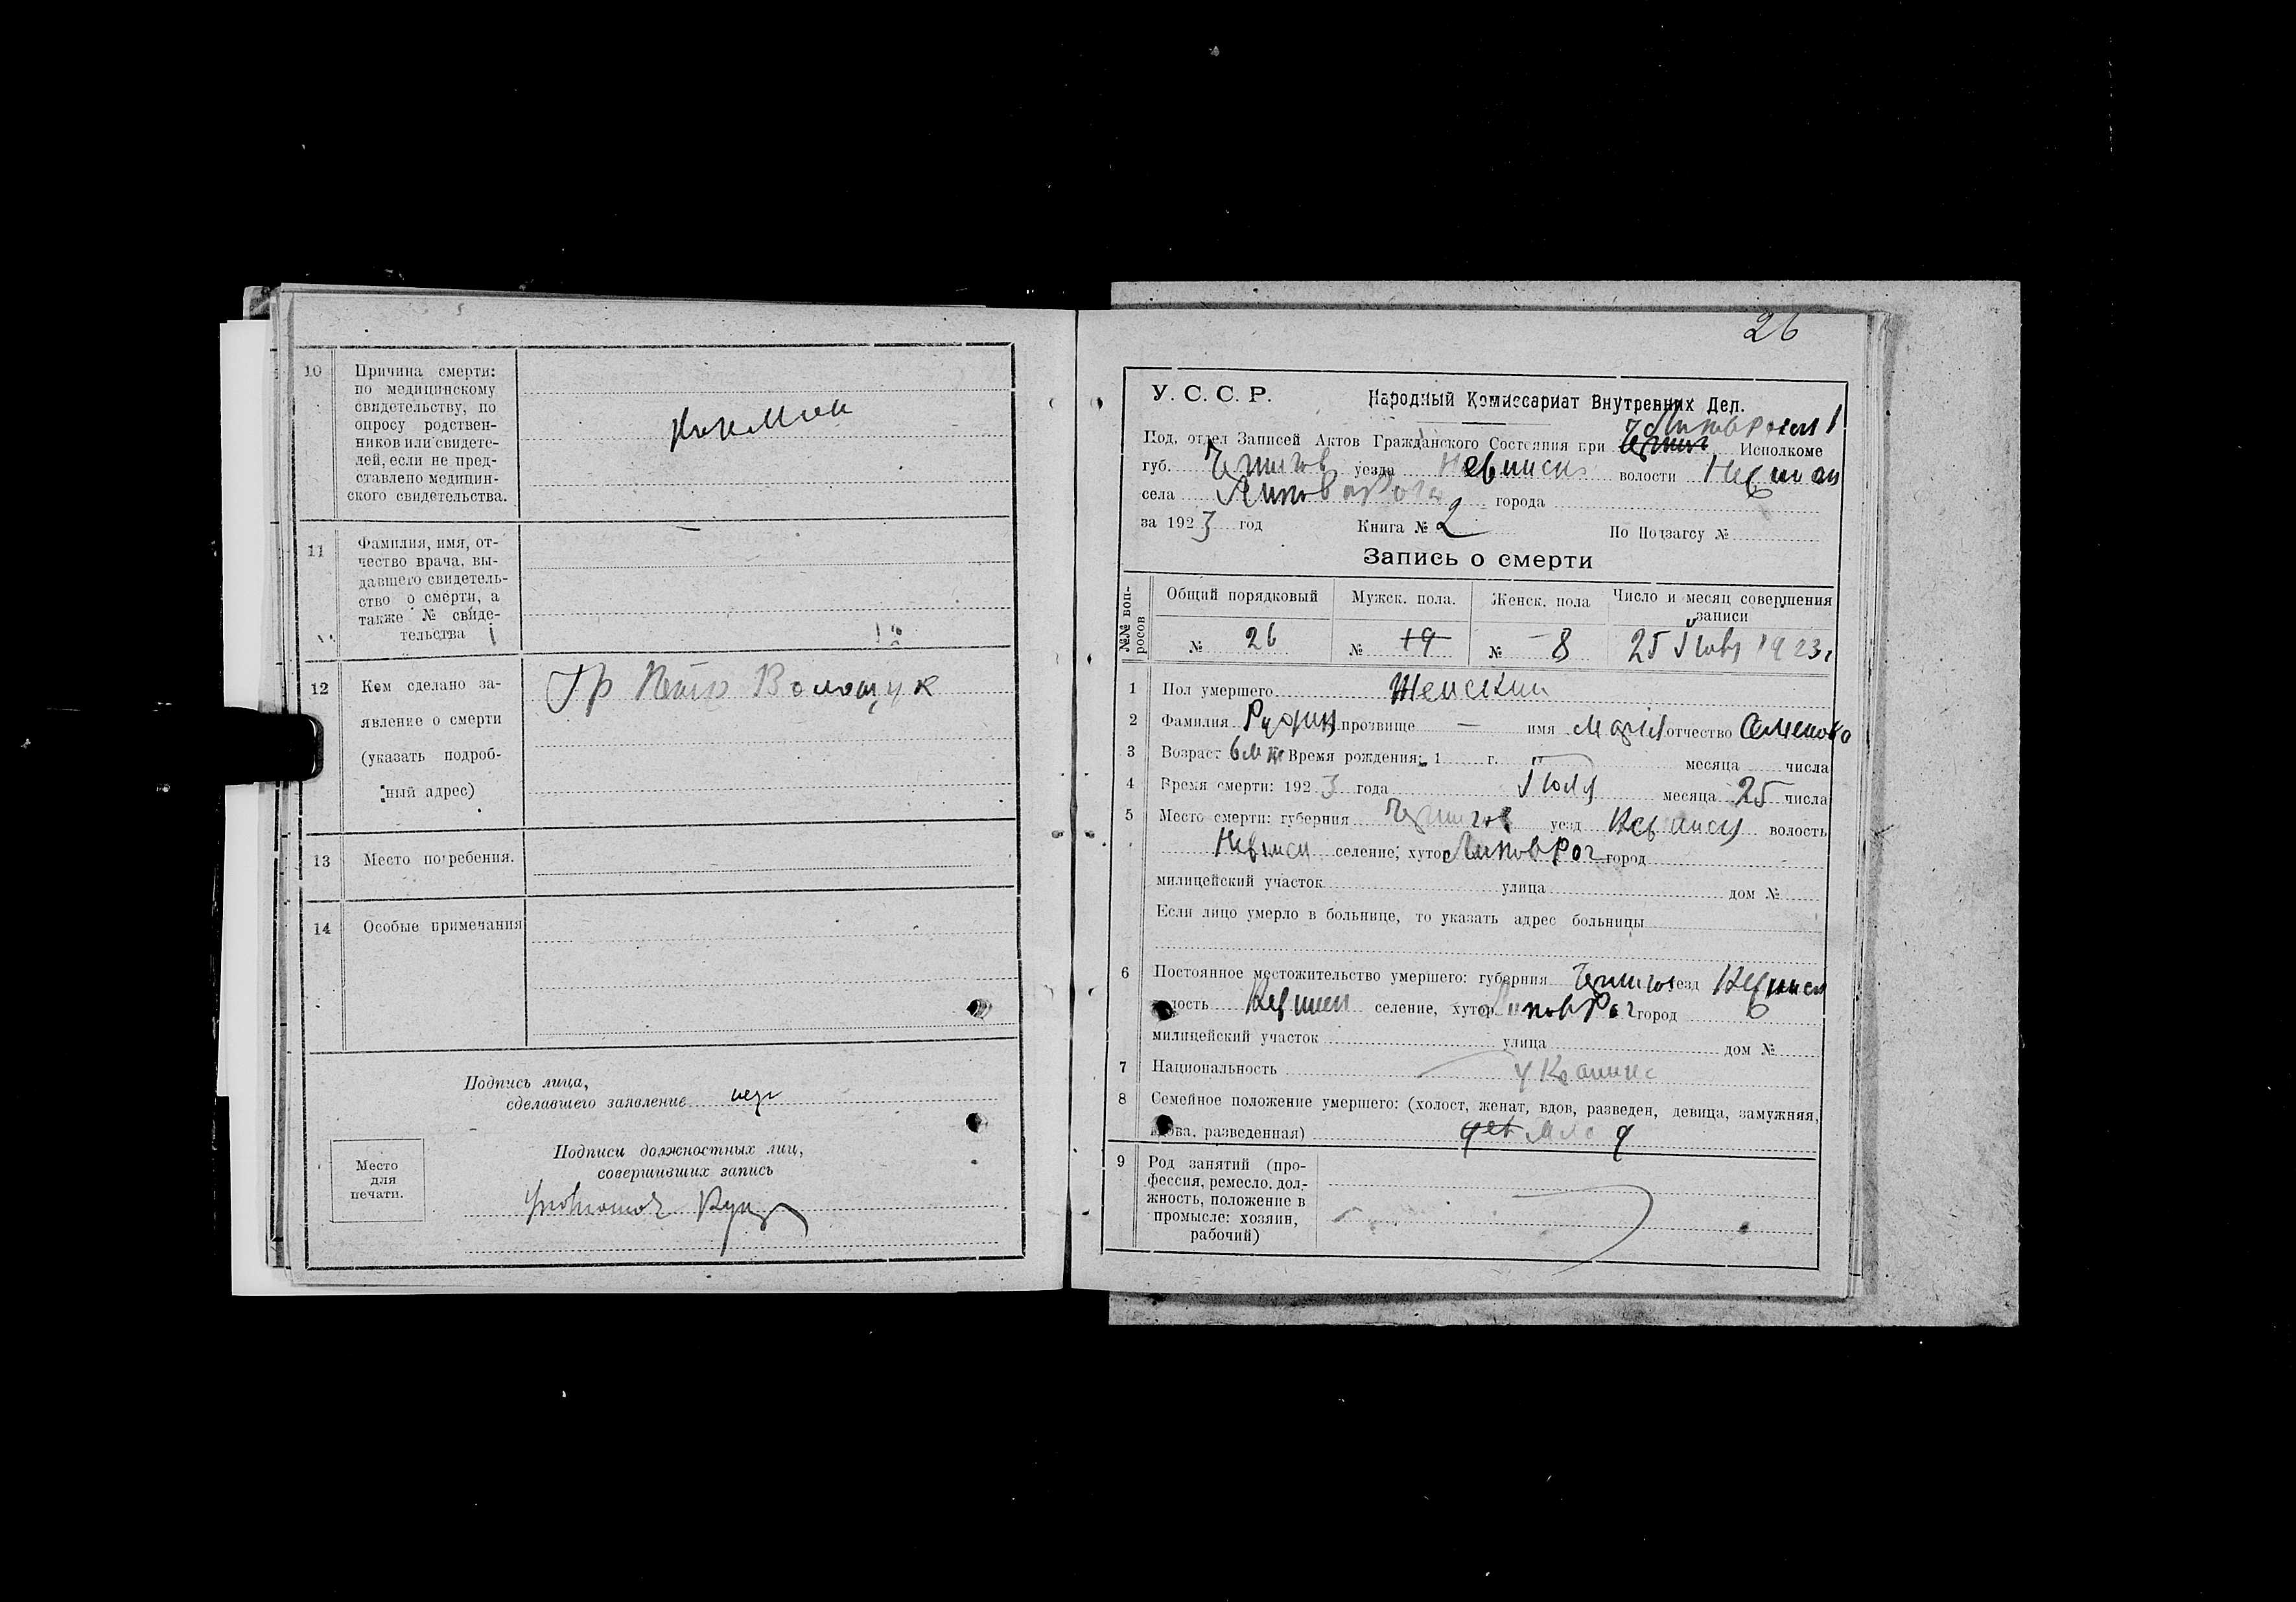 10 Причина смерти:
по медицинскому
свидетельству, по
опросу родствен-
ников или свидете-
лей, если не пред-
ставлено медицин-
ского свидетельства.
11 Фамилия, имя, от-
чество врача, вы-
давшего свидетель-
ство о смерти, а
также № свиде-
тельства
12 Кем сделано за- Гр Петро Волощук
явление о смерти
(указать подроб-
ный адрес)
13 Место погребения.
14 Особые примечания
Подпись лица,
сделавшего заявление
Подписи должностных лиц,
совершивших запись
Место
для
печати.
26
У. С. С. Р. Народный Комиссариат Внутренних Дел.
Под. отдел Записей Актов Гражданского Состояния при Исполкоме
губ. Чернигов уезда волости
села города
за 1923 год Книга № 2 По Подзагсу №
Запись о смерти
№№ воп-
росов
Общий порядковый Мужск. пола. Женск. пола Число и месяц совершения
записи
№ 26 № 19 № 8 25 1923
1 Пол умершего Женский
2 Фамилия прозвище — имя Марія отчество Семенов
3 Возраст 6 м Время рождения: 1 г. месяца числа
4 Время смерти: 1923 года Июля месяца 25 числа
5 Место смерти: губерния Чернигов уезд волость
селение, хутор Липов Рог город
милицейский участок улица дом №
Если лицо умерло в больнице, то указать адрес больницы
6 Постоянное местожительство умершего: губерния Чернигов уезд
волость селение, хутор Липов Рог город
милицейский участок улица дом №
7 Национальность
8 Семейное положение умершего: (холост, женат, вдов, разведен, девица, замужняя,
вдова, разведенная)
9 Род занятий (про-
фессия, ремесло, дол-
жность, положение в
промысле: хозяин,
рабочий)